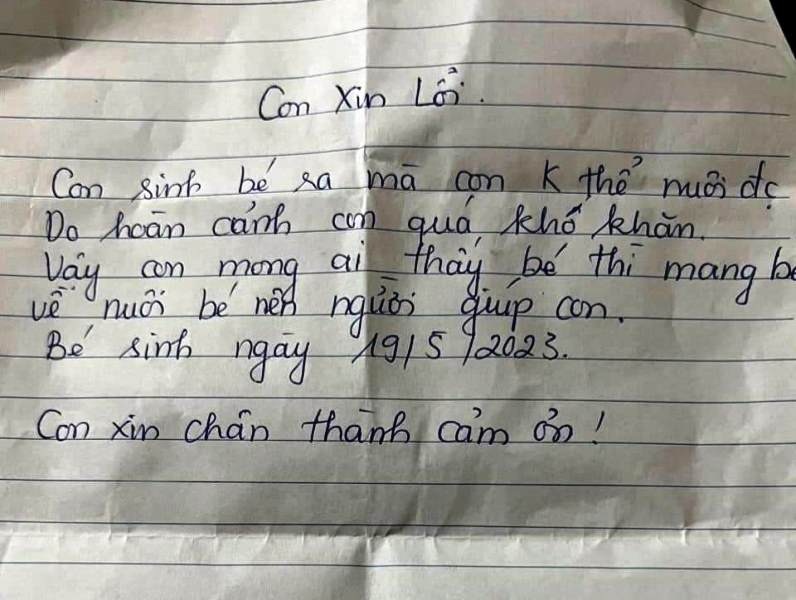 Con Xin Lỗi.
Con sinh bé ra mà con K thể nuôi đc
Do hoàn cảnh con quá khó khăn.
Vậy con mong ai thấy bé thì mang bé
về nuôi bé nên người giúp con.
Bé sinh ngày 19/5/2023.
Con xin chân thành cảm ơn!